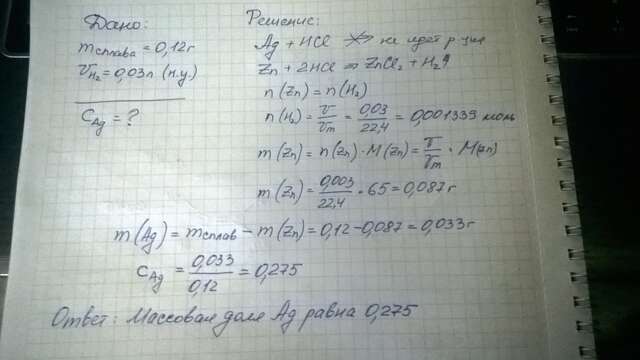 Дано:
mсплава = 0,12г
VH₂ = 0,03л (н.у.)
CAg = ?
Решение:
Ag + HCl ⇏ не идет р-ция
Zn + 2HCl ⇒ ZnCl₂ + H₂↑
n(Zn) = n(H₂)
n(H₂) = V/Vm = 0,03/22,4 = 0,001339 моль
m(Zn) = n(Zn)·M(Zn) = V/Vm · M(Zn)
m(Zn) = 0,003/22,4 · 65 = 0,087г
m(Ag) = mсплав - m(Zn) = 0,12-0,087 = 0,033г
CAg = 0,033/0,12 = 0,275
Ответ: Массовая доля Ag равна 0,275